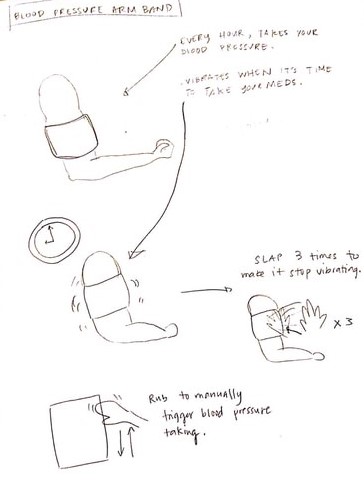 BLOOD PRESSURE ARM BAND
EVERY HOUR, TAKES YOUR
BLOOD PRESSURE.
VIBRATES WHEN IT'S TIME
TO TAKE YOUR MEDS.
SLAP 3 times to
make it stop vibrating.
x 3
Rub to manually
trigger blood pressure
taking.